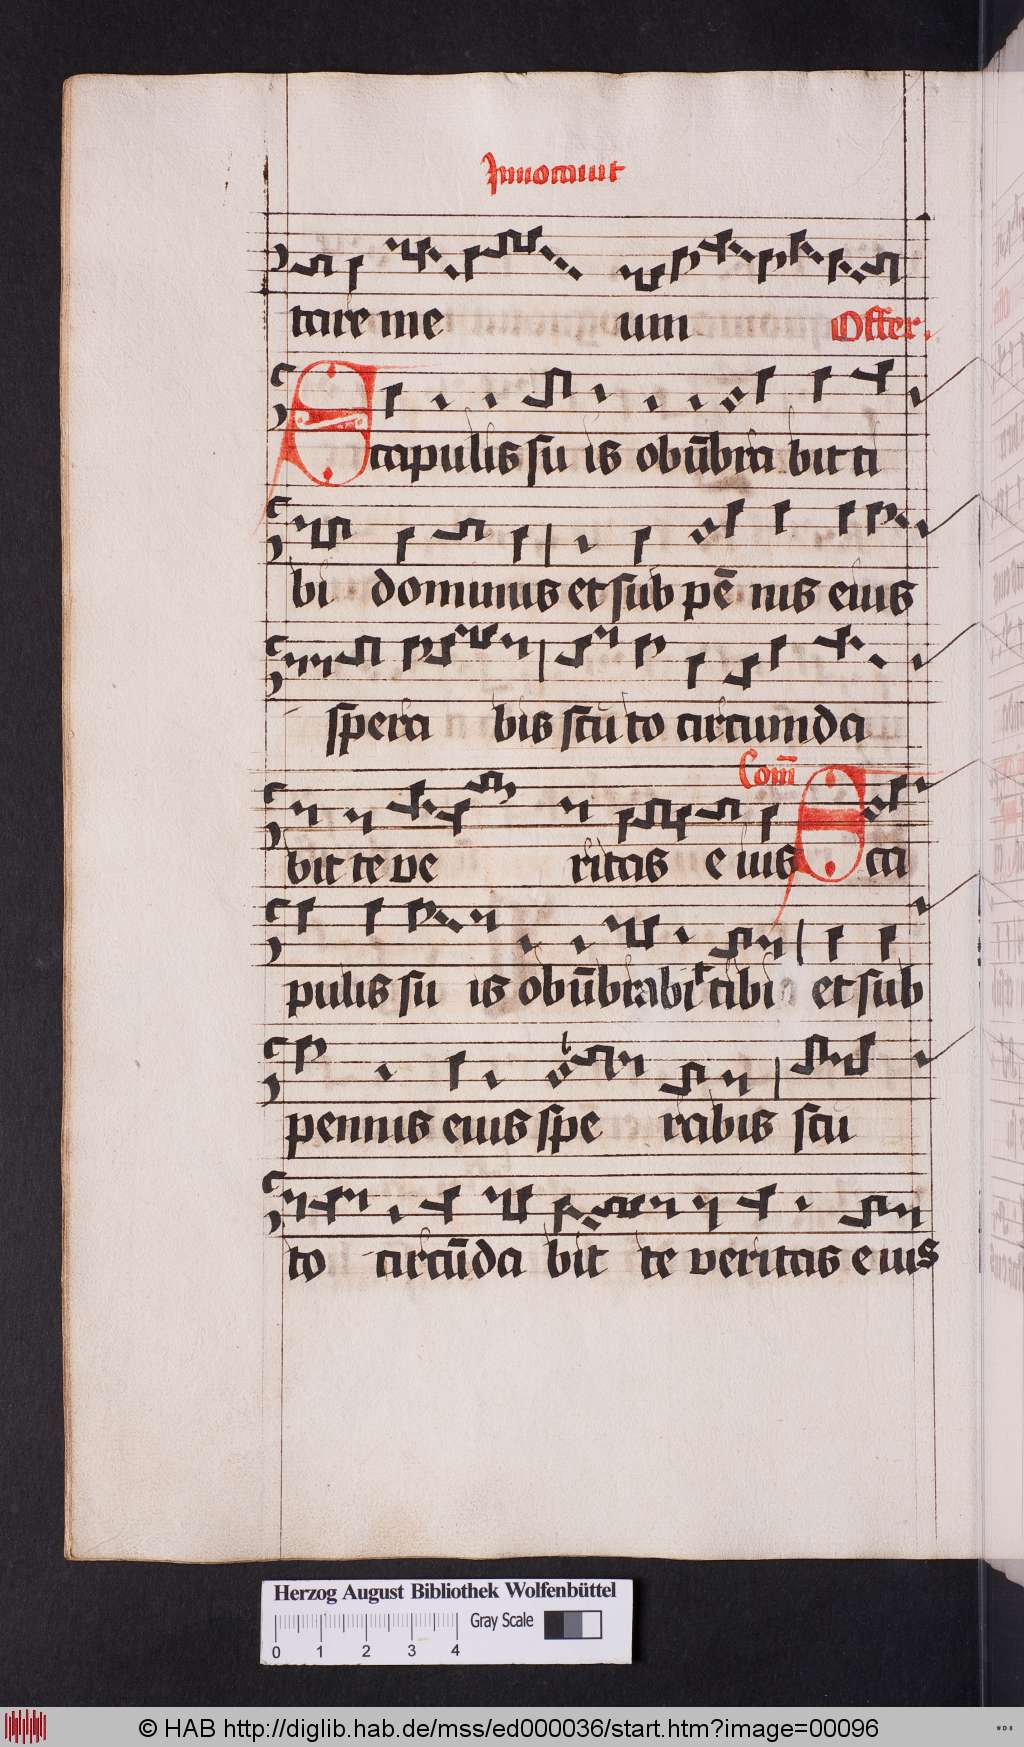 Inuocauit
tare me um Offer.
Scapulis su is obūbra bit ti
bi dominus et sub pē nis eius
spera bis scuto circumda
Com̄
bit te ve ritas e ius Sca
pulis su is obūbrabit tibi et sub
pennis eius spe rabis scu
to circūda bit te veritas eius
Herzog August Bibliothek Wolfenbüttel
Gray Scale
0 1 2 3 4
© HAB http://diglib.hab.de/mss/ed000036/start.htm?image=00096